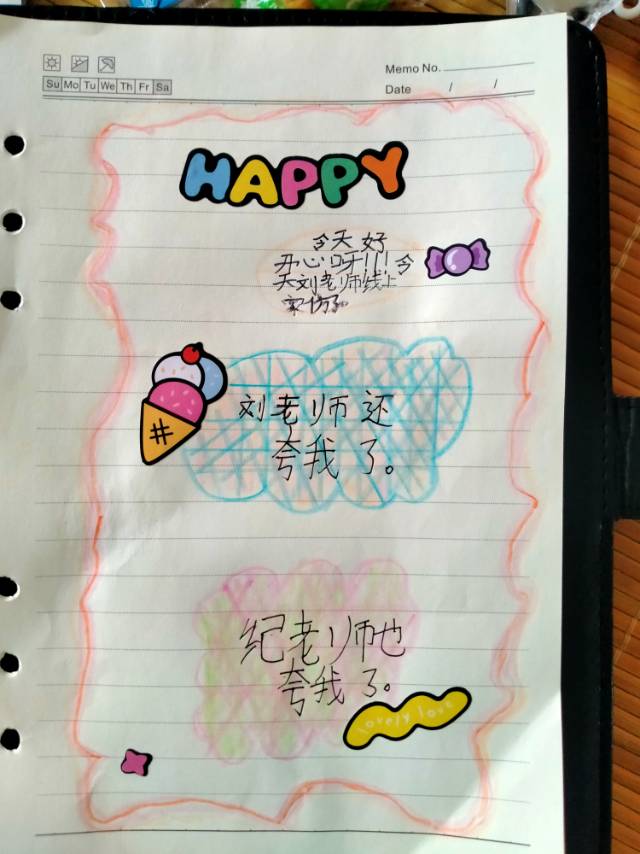 Memo No.
Su Mo Tu We Th Fr Sa
Date / /
HAPPY
今天好
开心呀!!!今
天刘老师线上
家访了
刘老师还
夸我了。
纪老师也
夸我了。
lovely love